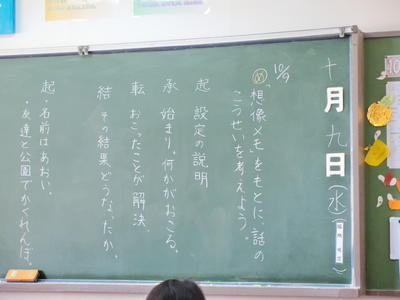 十月九日(水)
10/9
め「想像メモ」をもとに、話の
こうせいを考えよう。
起 設定の説明
承 始まり。何かがおこる。
転 おこったことが解決。
結 その結果どうなったか。
起・名前はあおい。
・友達と公園でかくれんぼ。
10